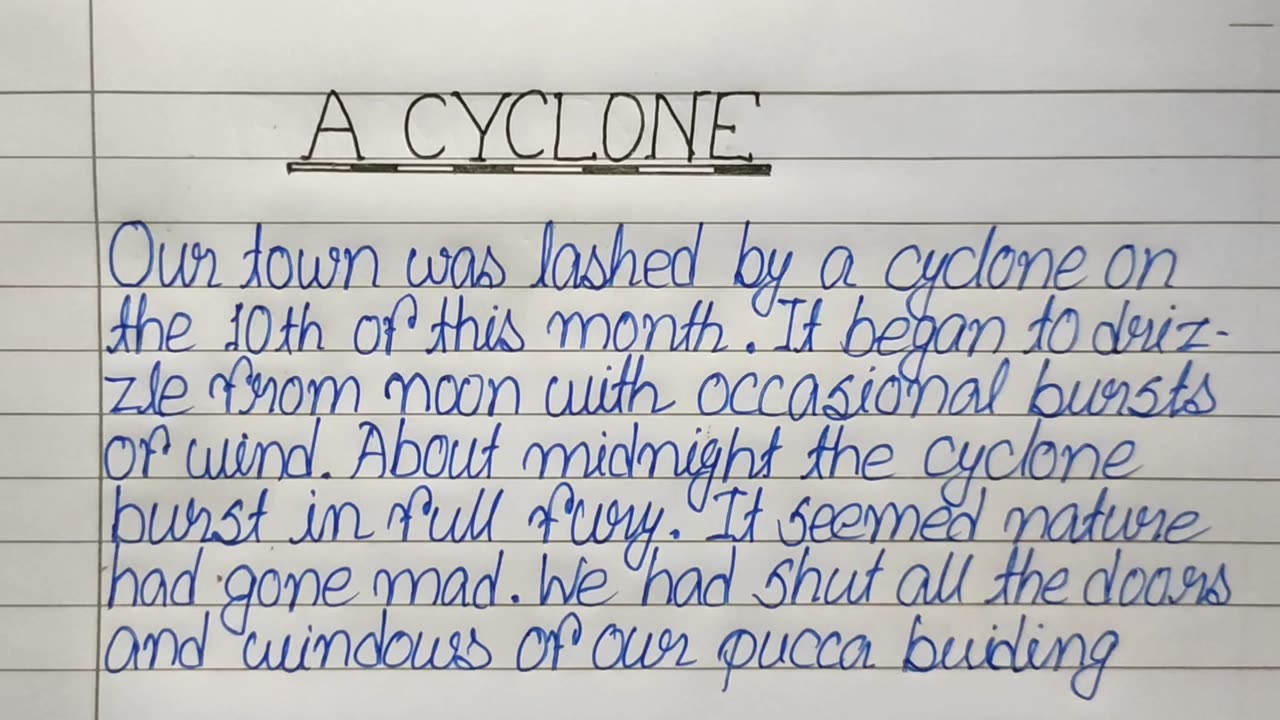 A CYCLONE
Our town was lashed by a cyclone on
the 10th of this month. It began to driz-
zle from noon with occasional bursts
of wind. About midnight the cyclone
burst in full fury. It seemed nature
had gone mad. We had shut all the doors
and windows of our pucca buiding